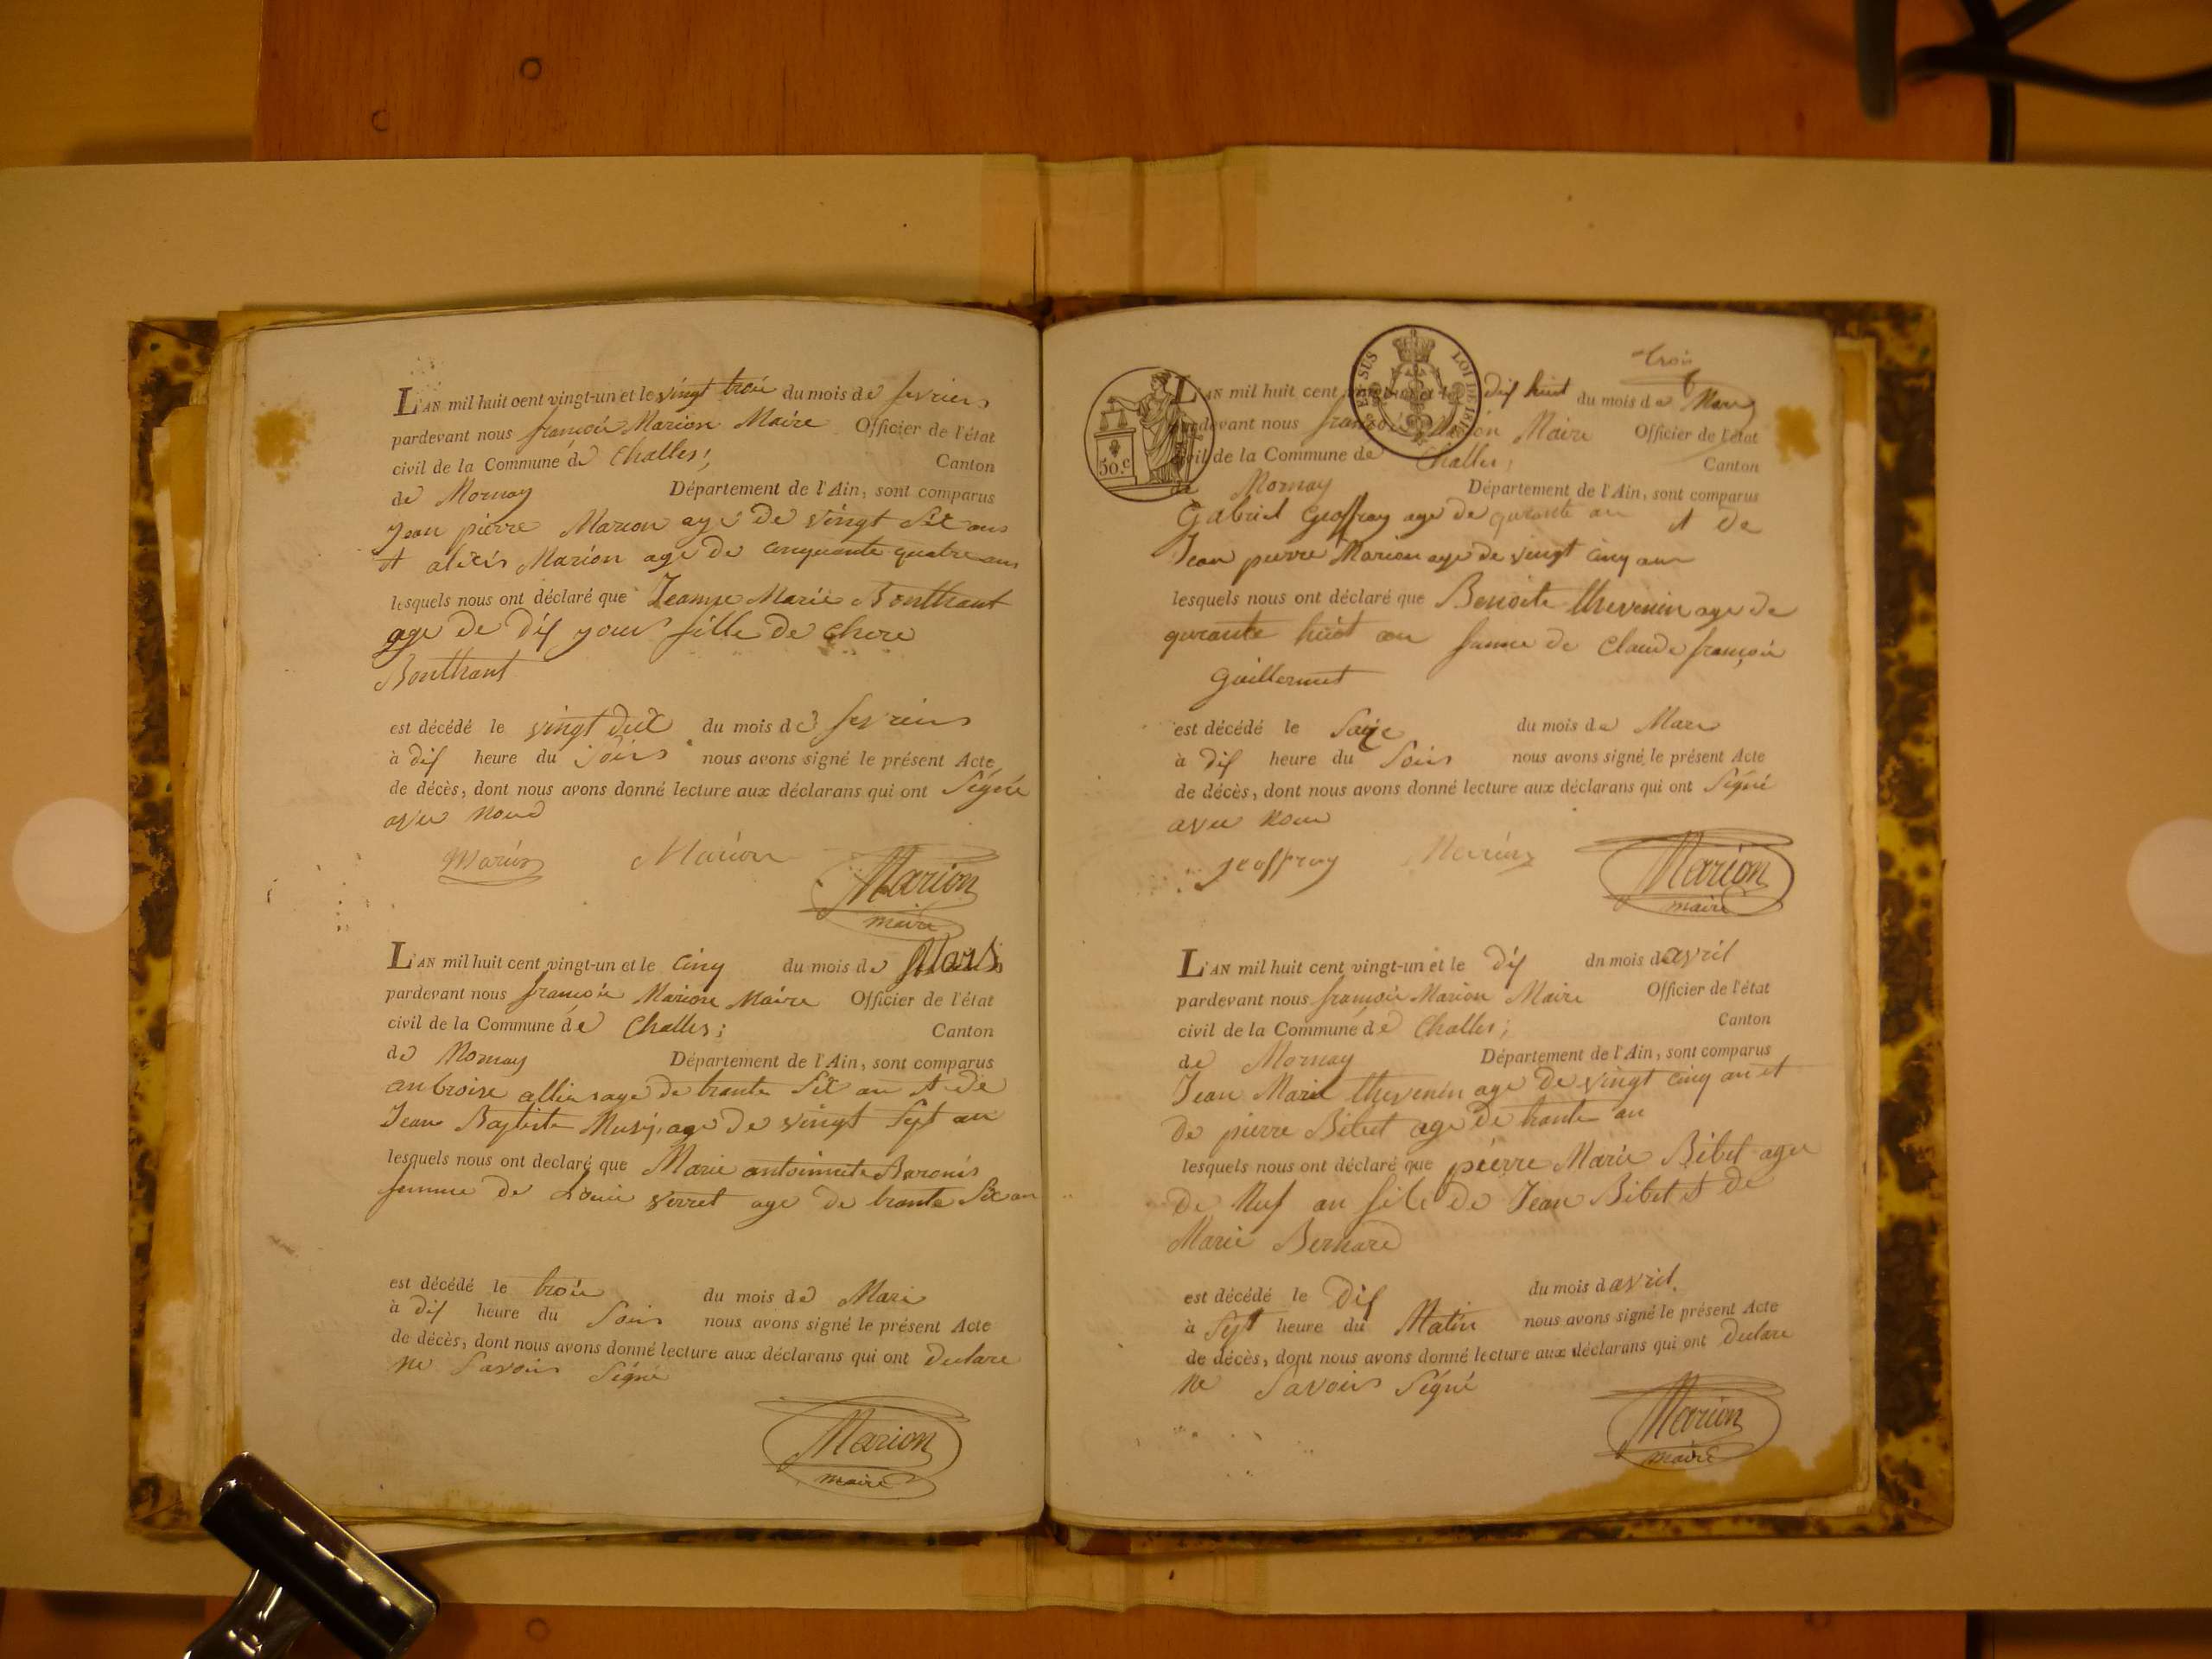 L'AN mil huit cent vingt-un et le vingt trois du mois de fevriers
pardevant nous françois Marion Maire Officier de l'état
civil de la Commune de Challes; Canton
de Mornay Département de l'Ain, sont comparus
Jean pierre Marion age de vingt six ans
et alexis Marion age de cinquante quatre ans
lesquels nous ont déclaré que Jeanne Marie Bonthant
age de dix jours fille de
Bonthant
est décédé le vingt deux du mois de fevriers
à dix heure du soirs nous avons signé le présent Acte
de décès, dont nous avons donné lecture aux déclarans qui ont Signé
avec nous
Marion Marion
Marion
maire
L'AN mil huit cent vingt-un et le cinq du mois de Mars
pardevant nous françois Marion Maire Officier de l'état
civil de la Commune de Challes; Canton
de Mornay Département de l'Ain, sont comparus
anbroise age de trante six an et de
Jean Baptiste age de vingt sept an
lesquels nous ont declaré que Marie antoinnete
femme de Louis verret age de trante six an
est décédé le trois du mois de Mars
à dix heure du Soirs nous avons signé le présent Acte
de décès, dont nous avons donné lecture aux déclarans qui ont Declare
ne Savoirs Signé
Marion
maire
trois
50.c
EN SUS LOI DE 1816
L'AN mil huit cent vingt-un et le dix huit du mois de Mars
pardevant nous françois Marion Maire Officier de l'état
civil de la Commune de Challes; Canton
de Mornay Département de l'Ain, sont comparus
Gabriel Geoffray age de quarante an et de
Jean pierre Marion age de vingt cinq an
lesquels nous ont déclaré que Benoite thevenin age de
quarante huit an famme de Claude françois
Guillermet
est décédé le Saize du mois de Mars
à dix heure du Soirs nous avons signé le présent Acte
de décès, dont nous avons donné lecture aux déclarans qui ont Signé
avec nous
geoffray Marion
Marion
maire
L'AN mil huit cent vingt-un et le Dix dn mois d avril
pardevant nous françois Marion Maire Officier de l'état
civil de la Commune de Challes; Canton
de Mornay Département de l'Ain, sont comparus
Jean Marie thevenin age de vingt cinq an et
de pierre Bibet age de trante an
lesquels nous ont déclaré que pierre Marie Bibet age
de Nuf an fils de Jean Bibet et de
Marie Bernard
est décédé le Dix du mois d avril
à Sept heure du Matin nous avons signé le présent Acte
de décès, dont nous avons donné lecture aux déclarans qui ont Declare
ne Savoirs Signé
Marion
maire